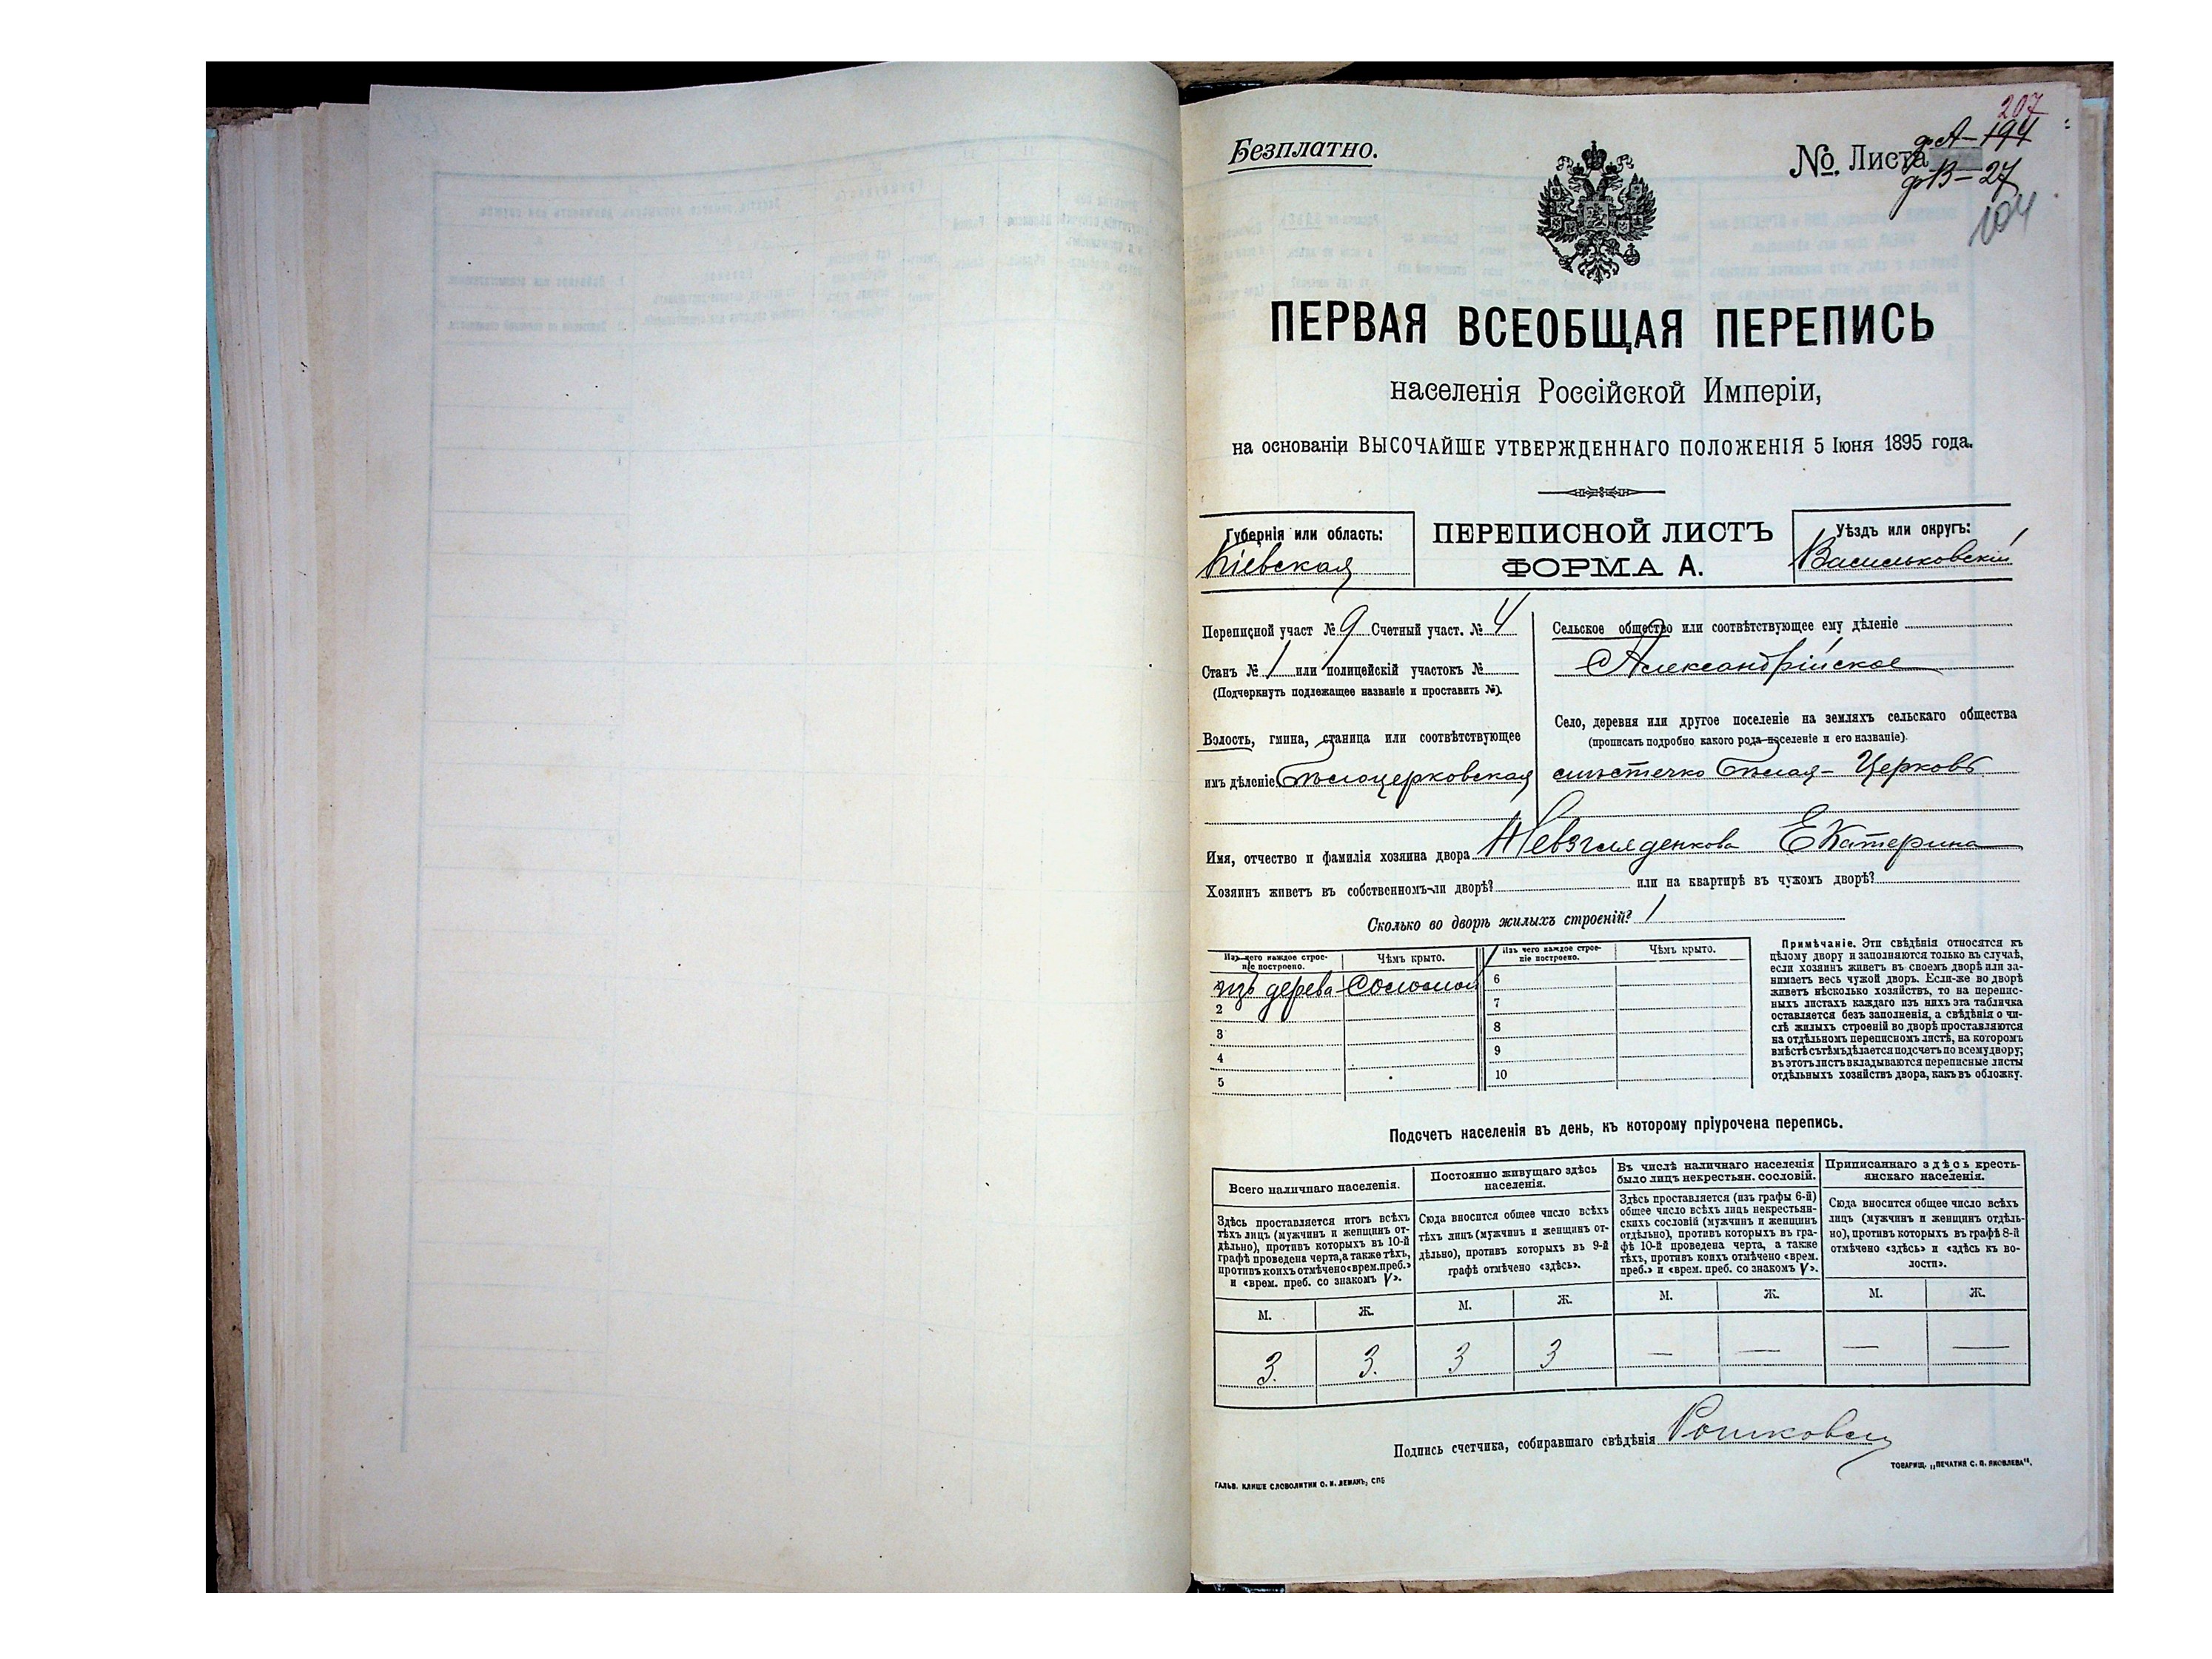 207
Безплатно.
№ Листа ф А – 194
ф В – 27
104
ПЕРВАЯ ВСЕОБЩАЯ ПЕРЕПИСЬ
населенія Россійской Имперіи,
на основаніи ВЫСОЧАЙШЕ УТВЕРЖДЕННАГО ПОЛОЖЕНІЯ 5 Іюня 1895 года.
Губернія или область:
Кіевская
ПЕРЕПИСНОЙ ЛИСТЪ
ФОРМА А.
Уѣздъ или округъ:
Васильковскій
Переписной участ № 9 Счетный участ. № 4
Станъ № 1 или полицейскій участокъ №
(Подчеркнуть подлежащее названіе и проставить №).
Волость, гмина, станица или соотвѣтствующее
имъ дѣленіе Бѣлоцерковская
Сельское общество или соотвѣтствующее ему дѣленіе
Александрійское
Село, деревня или другое поселеніе на земляхъ сельскаго общества
(прописать подробно какого рода поселеніе и его названіе).
мѣстечко Бѣлая-Церковь
Имя, отчество и фамилія хозяина двора Невзгляденкова Екатерина
Хозяинъ живетъ въ собственномъ-ли дворѣ? или на квартирѣ въ чужомъ дворѣ?
Сколько во дворѣ жилыхъ строеній? 1
Изъ чего каждое строе-
ніе построено.
Чѣмъ крыто.
Изъ чего каждое строе-
ніе построено.
Чѣмъ крыто.
изъ дерева соломой
2
3
4
5
6
7
8
9
10
Примѣчаніе. Эти свѣдѣнія относятся къ
цѣлому двору и заполняются только въ случаѣ,
если хозяинъ живетъ въ своемъ дворѣ или за-
нимаетъ весь чужой дворъ. Если-же во дворѣ
живетъ нѣсколько хозяйствъ, то на перепис-
ныхъ листахъ каждаго изъ нихъ эта табличка
оставляется безъ заполненія, а свѣдѣнія о чи-
слѣ жилыхъ строеній во дворѣ проставляются
на отдѣльномъ переписномъ листѣ, на которомъ
вмѣстѣ съ тѣмъ дѣлается подсчетъ по всему двору;
въ этотъ листъ вкладываются переписные листы
отдѣльныхъ хозяйствъ двора, какъ въ обложку.
Подсчетъ населенія въ день, къ которому пріурочена перепись.
Всего наличнаго населенія.
Здѣсь проставляется итогъ всѣхъ
тѣхъ лицъ (мужчинъ и женщинъ от-
дѣльно), противъ которыхъ въ 10-й
графѣ проведена черта, а также тѣхъ,
противъ коихъ отмѣчено «врем. преб.»
и «врем. преб. со знакомъ V».
Постоянно живущаго здѣсь
населенія.
Сюда вносится общее число всѣхъ
тѣхъ лицъ (мужчинъ и женщинъ от-
дѣльно), противъ которыхъ въ 9-й
графѣ отмѣчено «здѣсь».
Въ числѣ наличнаго населенія
было лицъ некрестьян. сословій.
Здѣсь проставляется (изъ графы 6-й)
общее число всѣхъ лицъ некрестьян-
скихъ сословій (мужчинъ и женщинъ
отдѣльно), противъ которыхъ въ гра-
фѣ 10-й проведена черта, а также
тѣхъ, противъ коихъ отмѣчено «врем.
преб.» и «врем. преб. со знакомъ V».
Приписаннаго здѣсь кресть-
янскаго населенія.
Сюда вносится общее число всѣхъ
лицъ (мужчинъ и женщинъ отдѣль-
но), противъ которыхъ въ графѣ 8-й
отмѣчено «здѣсь» и «здѣсь къ во-
лости».
М. Ж. М. Ж. М. Ж. М. Ж.
3. 3. 3 3 — — — —
Подпись счетчика, собиравшаго свѣдѣнія
ГАЛЬВ. КЛИШЕ СЛОВОЛИТНИ О. И. ЛЕМАНЪ, СПБ
ТОВАРИЩ. „ПЕЧАТНЯ С. П. ЯКОВЛЕВА".